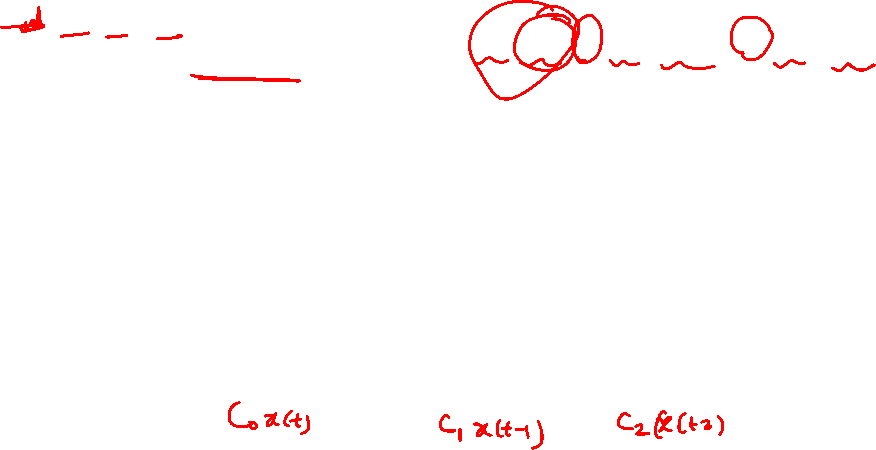 C₀ x(t) C₁ x(t-1) C₂ (x(t-2)